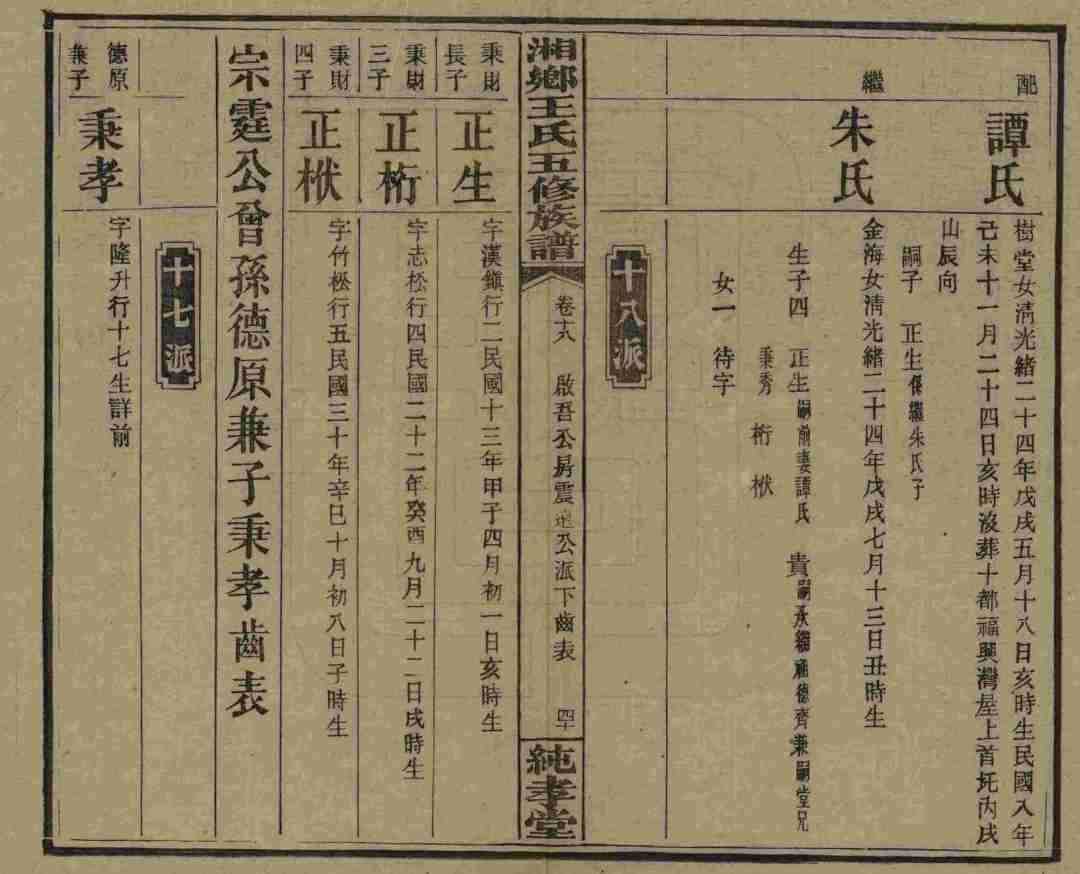 配
譚氏
樹堂女淸光緒二十四年戊戌五月十八日亥時生民國八年
己未十一月二十四日亥時沒葬十都福興灣屋上首圫丙戌
山辰向
嗣子 正生係繼朱氏子
繼
朱氏
金海女淸光緒二十四年戊戌七月十三日丑時生
生子四 正生嗣前妻譚氏 貴嗣承繼祧德齊兼嗣堂兄
秉秀 桁 栿
女一 待字
十八派
湘鄉王氏五修族譜
卷十八 啟吾公房震遠公派下齒表 四十
純孝堂
秉財
長子
正生
字漢鎭行二民國十三年甲子四月初一日亥時生
秉財
三子
正桁
字志松行四民國二十二年癸酉九月二十二日戌時生
秉財
四子
正栿
字竹松行五民國三十年辛巳十月初八日子時生
宗霆公曾孫德原兼子秉孝齒表
十七派
德原
兼子
秉孝
字隆升行十七生詳前